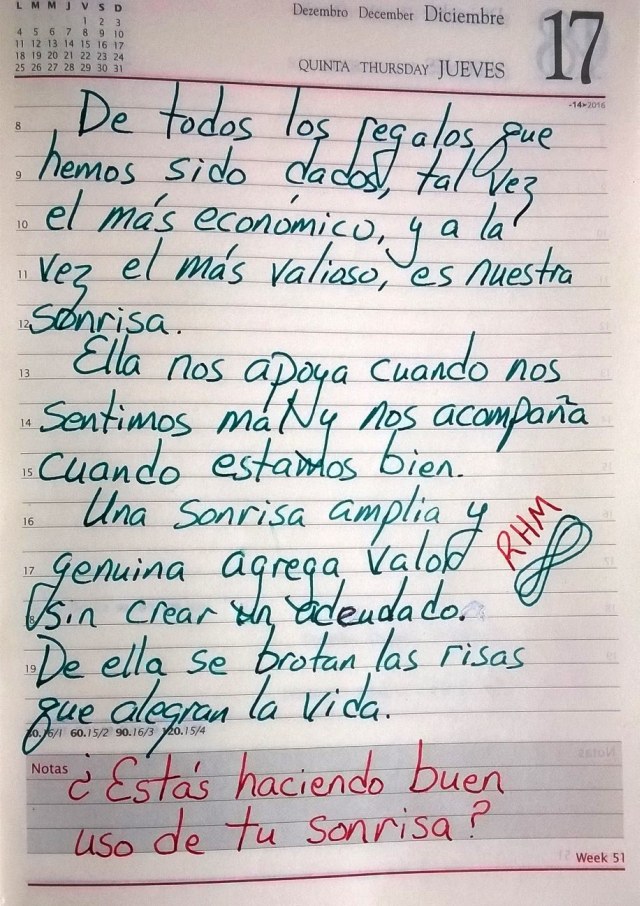 L M M J V S D
1 2 3
4 5 6 7 8 9 10
11 12 13 14 15 16 17
18 19 20 21 22 23 24
25 26 27 28 29 30 31
Dezembro December Diciembre
17
QUINTA THURSDAY JUEVES
-14►2016
8 De todos los regalos que
9 hemos sido dados, tal vez
10 el más económico, y a la
11 vez el más valioso, es nuestra
12 sonrisa.
13 Ella nos apoya cuando nos
14 sentimos mal y nos acompaña
15 cuando estamos bien.
16 Una sonrisa amplia y
17 genuina agrega valor
RHM
18 sin crear un adeudado.
19 De ella se brotan las risas
que alegran la vida.
30.16/1 60.15/2 90.16/3 120.15/4
Notas ¿Estás haciendo buen
uso de tu sonrisa?
Week 51